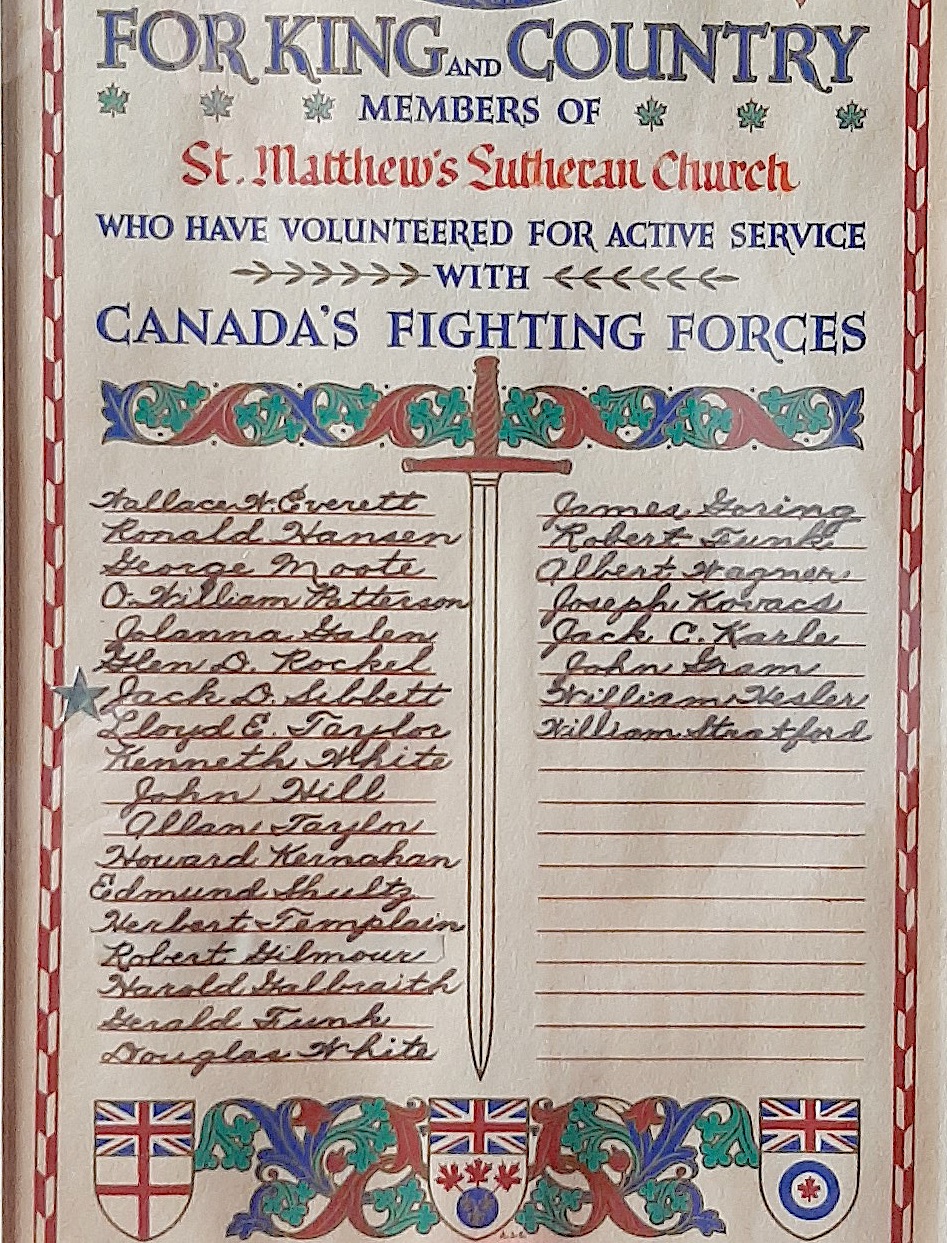 FOR KING AND COUNTRY
MEMBERS OF
St. Matthew's Lutheran Church
WHO HAVE VOLUNTEERED FOR ACTIVE SERVICE
WITH
CANADA'S FIGHTING FORCES
Wallace W. Everett
Ronald Hansen
George Moote
O. William Patterson
Jolanna Galen
Glen D. Rockel
Jack D. Sibbett
Lloyd E. Taylor
Kenneth White
John Hill
Allan Taylor
Howard Kernahan
Edmund Shultz
Herbert Templain
Robert Gilmour
Harold Galbraith
Gerald Funk
Douglas White
James Goring
Robert Funk
Albert Wagner
Joseph Kovacs
Jack C. Karle
John Gram
William Hesler
William Stratford